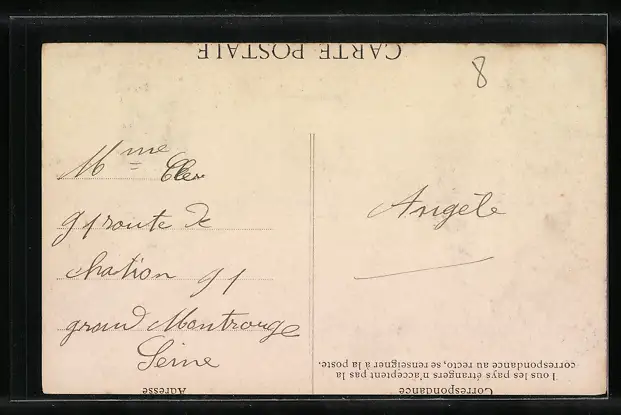 CARTE POSTALE
8
Mme
91 route de
chation 91
grand Montrouge
Seine
Angèle
Correspondance
Tous les pays étrangers n'acceptent pas la
correspondance au recto, se renseigner à la poste.
Adresse